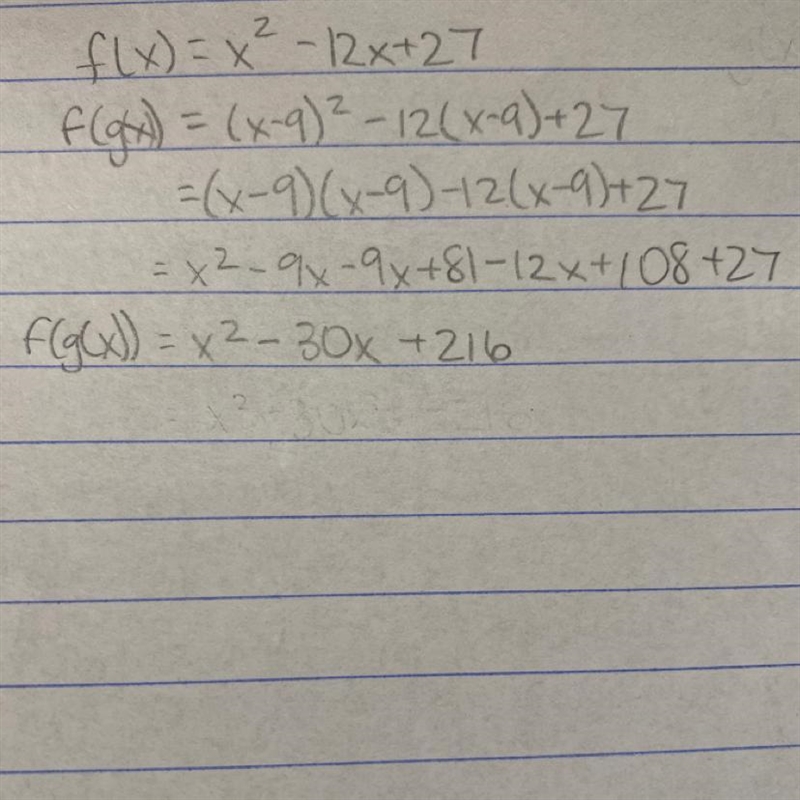 f(x) = x² - 12x+27
f(g(x)) = (x-9)² - 12(x-9)+27
=(x-9)(x-9)-12(x-9)+27
= x² - 9x - 9x+81-12x+108+27
f(g(x)) = x² - 30x +216